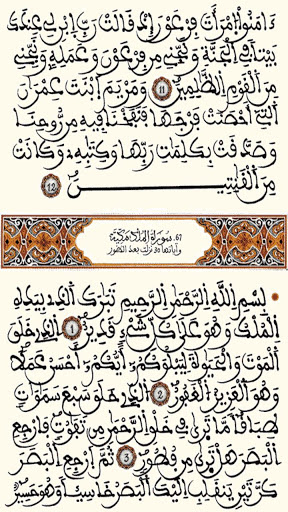 ءَامَنُواْ اِمْرَأَتَ فِرْعَوْنَ إِذْ قَالَتْ رَبِّ اِبْنِ لِے عِندَكَ
بَيْتاً فِے اِلْجَنَّةِ وَنَجِّنِے مِن فِرْعَوْنَ وَعَمَلِهِۦ وَنَجِّنِے
مِنَ اَلْقَوْمِ اِلظَّٰلِمِينَ 11 وَمَرْيَمَ اَبْنَتَ عِمْرَٰنَ
اَلتِےٓ أَحْصَنَتْ فَرْجَهَا فَنَفَخْنَا فِيهِ مِن رُّوحِنَا
وَصَدَّقَتْ بِكَلِمَٰتِ رَبِّهَا وَكِتَٰبِهِۦ وَكَانَتْ
مِنَ اَلْقَٰنِتِينَ 12
67 سورة الملك مكية
وآياتها 30 نزلت بعد الطور
بِسْمِ اِللَّهِ اِلرَّحْمَٰنِ اِلرَّحِيمِ تَبَٰرَكَ اَلذِے بِيَدِهِ
اِلْمُلْكُ وَهُوَ عَلَىٰ كُلِّ شَےْءٖ قَدِيرٌ 1 اِلذِے خَلَقَ
اَلْمَوْتَ وَالْحَيَوٰةَ لِيَبْلُوَكُمُۥٓ أَيُّكُمُۥٓ أَحْسَنُ عَمَلاٗ
وَهُوَ اَلْعَزِيزُ اُلْغَفُورُ 2 اُلذِے خَلَقَ سَبْعَ سَمَٰوَٰتٖ
طِبَاقاٗ مَّا تَرَىٰ فِے خَلْقِ اِلرَّحْمَٰنِ مِن تَفَٰوُتٖ فَارْجِعِ
اِلْبَصَرَ هَلْ تَرَىٰ مِن فُطُورٖ 3 ثُمَّ اَرْجِعِ اِلْبَصَرَ
كَرَّتَيْنِ يَنقَلِبِ اِلَيْكَ اَلْبَصَرُ خَاسِئاٗ وَهُوَ حَسِيرٞ